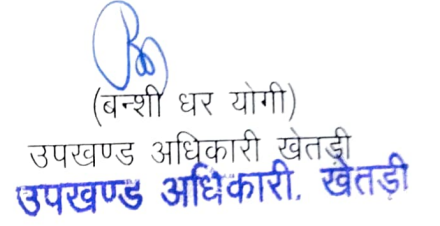 (बन्शी धर योगी)
उपखण्ड अधिकारी खेतड़ी
उपखण्ड अधिकारी. खेतड़ी